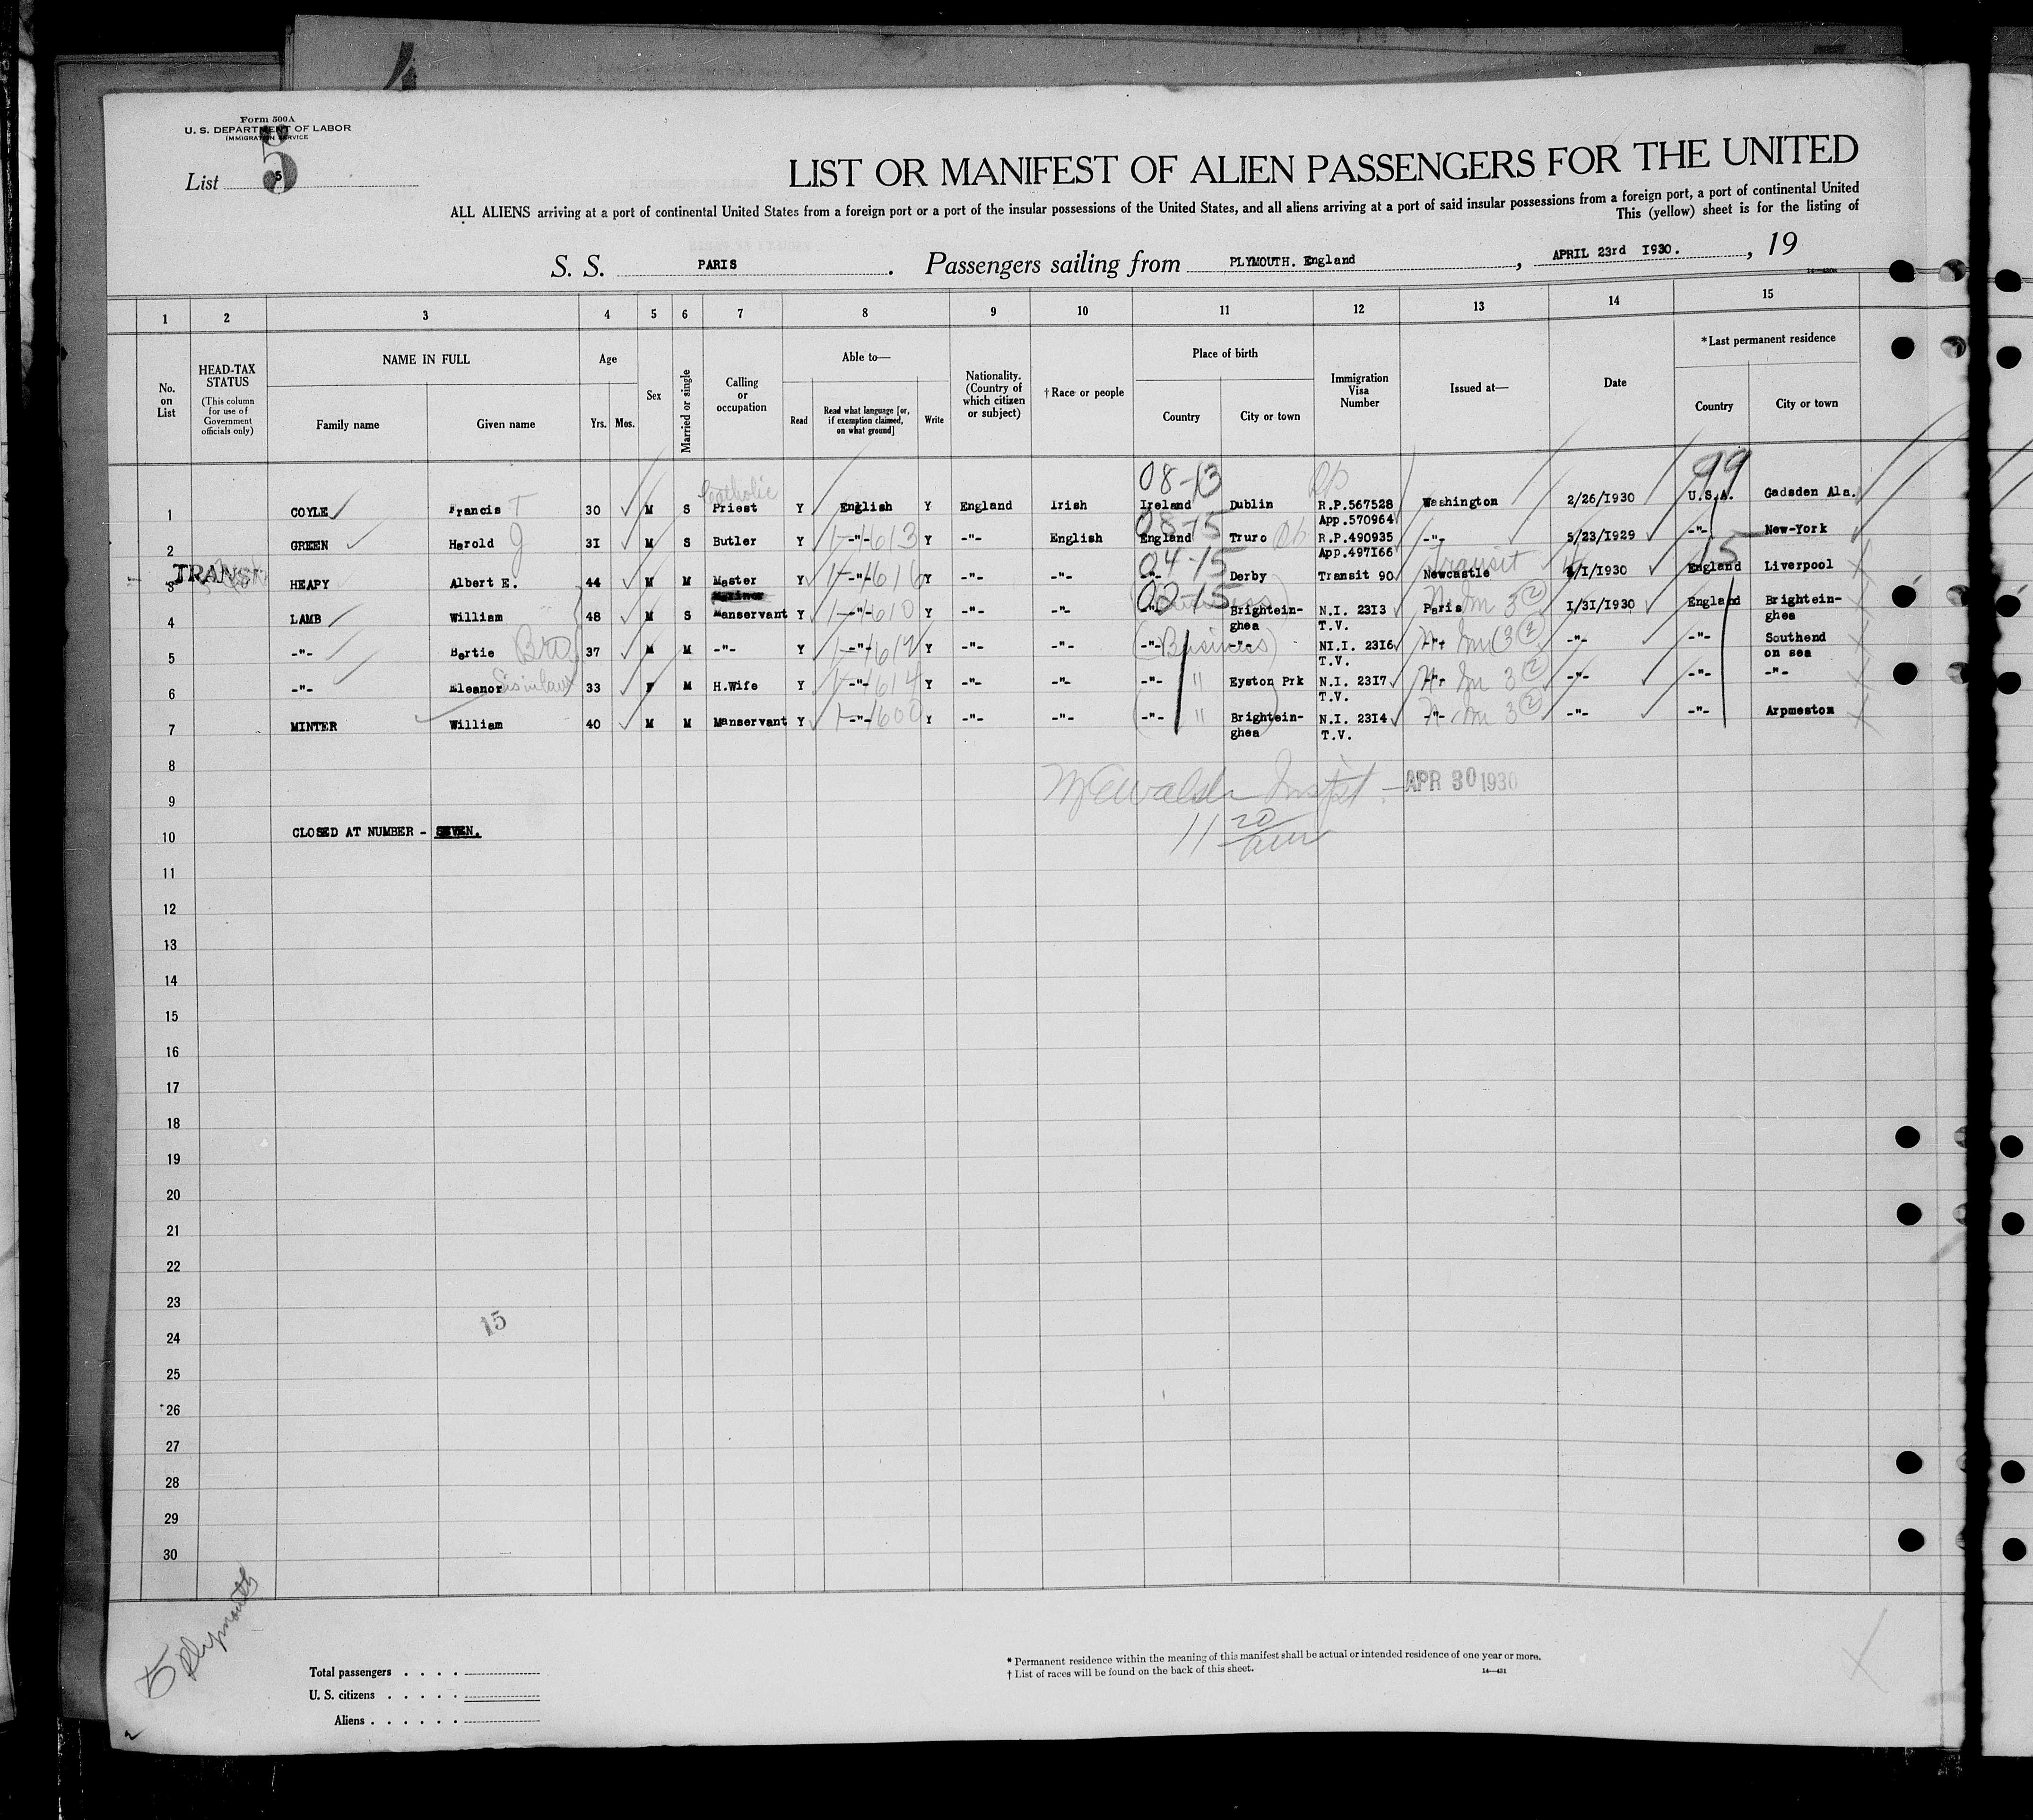 Form 500A
U. S. DEPARTMENT OF LABOR
IMMIGRATION SERVICE
List 5
5
LIST OR MANIFEST OF ALIEN PASSENGERS FOR THE UNITED
ALL ALIENS arriving at a port of continental United States from a foreign port or a port of the insular possessions of the United States, and all aliens arriving at a port of said insular possessions from a foreign port, a port of continental United
This (yellow) sheet is for the listing of
S. S. PARIS. Passengers sailing from PLYMOUTH. England, APRIL 23rd 1930. , 19
1 2 3 4 5 6 7 8 9 10 11 12 13 14 15
No. on List
HEAD-TAX STATUS (This column for use of Government officials only)
NAME IN FULL
Family name Given name
Age
Yrs. Mos.
Sex
Married or single
Calling or occupation
Able to—
Read Read what language [or, if exemption claimed, on what ground] Write
Nationality. (Country of which citizen or subject)
†Race or people
Place of birth
Country City or town
Immigration Visa Number
Issued at—
Date
*Last permanent residence
Country City or town
08-13 99
1 COYLE Francis T 30 M S Catholic Priest Y English Y England Irish Ireland Dublin R.P.567528 Washington 2/26/1930 U.S.A. Gadsden Ala.
App.570964
08-15
2 GREEN Harold J 31 M S Butler Y -"- Y -"- English England Truro R.P.490935 -"- 5/23/1929 -"- New-York
App.497166
04-15 Transit 15
3 TRANSIT HEAPY Albert E. 44 M M Master Y -"- Y -"- -"- -"- Derby Transit 90 Newcastle /1/1930 England Liverpool
02-15
4 LAMB William 48 M S Manservant Y -"- Y -"- -"- -"- Brightein-ghea N.I. 2313 T.V. Paris 1/31/1930 England Brightein-ghea
5 -"- Bertie Bro 37 M M -"- Y -"- Y -"- -"- -"- (Business) -"- NI.I. 2316 T.V. -"- -"- -"- Southend on sea
6 -"- Eleanor Sisinlaw 33 F M H.Wife Y -"- Y -"- -"- -"- " Eyston Prk N.I. 2317 T.V. -"- -"- -"- -"-
7 MINTER William 40 M M Manservant Y -"- Y -"- -"- -"- " Brightein-ghea N.I. 2314 T.V. -"- -"- -"- Arpmeston
8
9 Walsh Inspt. APR 30 1930
10 CLOSED AT NUMBER - SEVEN. 11 20 am
11
12
13
14
15
16
17
18
19
20
21
22
23
15
24
25
26
27
28
29
30
5 Plymouth
Total passengers . . . .
U. S. citizens . . . . .
Aliens . . . . . .
* Permanent residence within the meaning of this manifest shall be actual or intended residence of one year or more.
† List of races will be found on the back of this sheet. 14—431